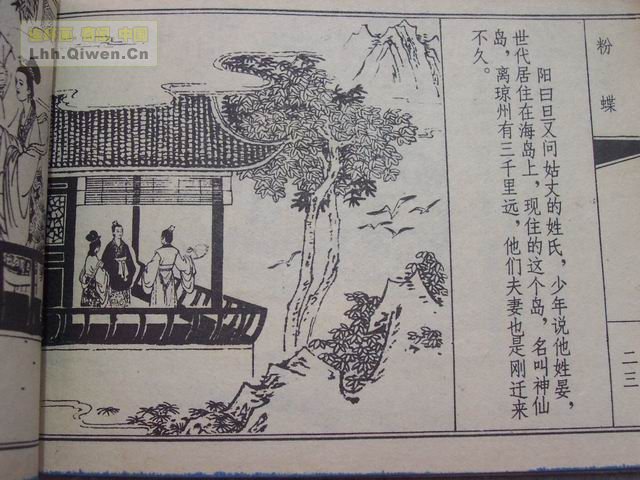 连环画 启蒙 中国
Lhh.Qiwen.Cn
粉蝶
阳曰旦又问姑丈的姓氏，少年说他姓晏，
世代居住在海岛上，现住的这个岛，名叫神仙
岛，离琼州有三千里远，他们夫妻也是刚迁来
不久。
二三